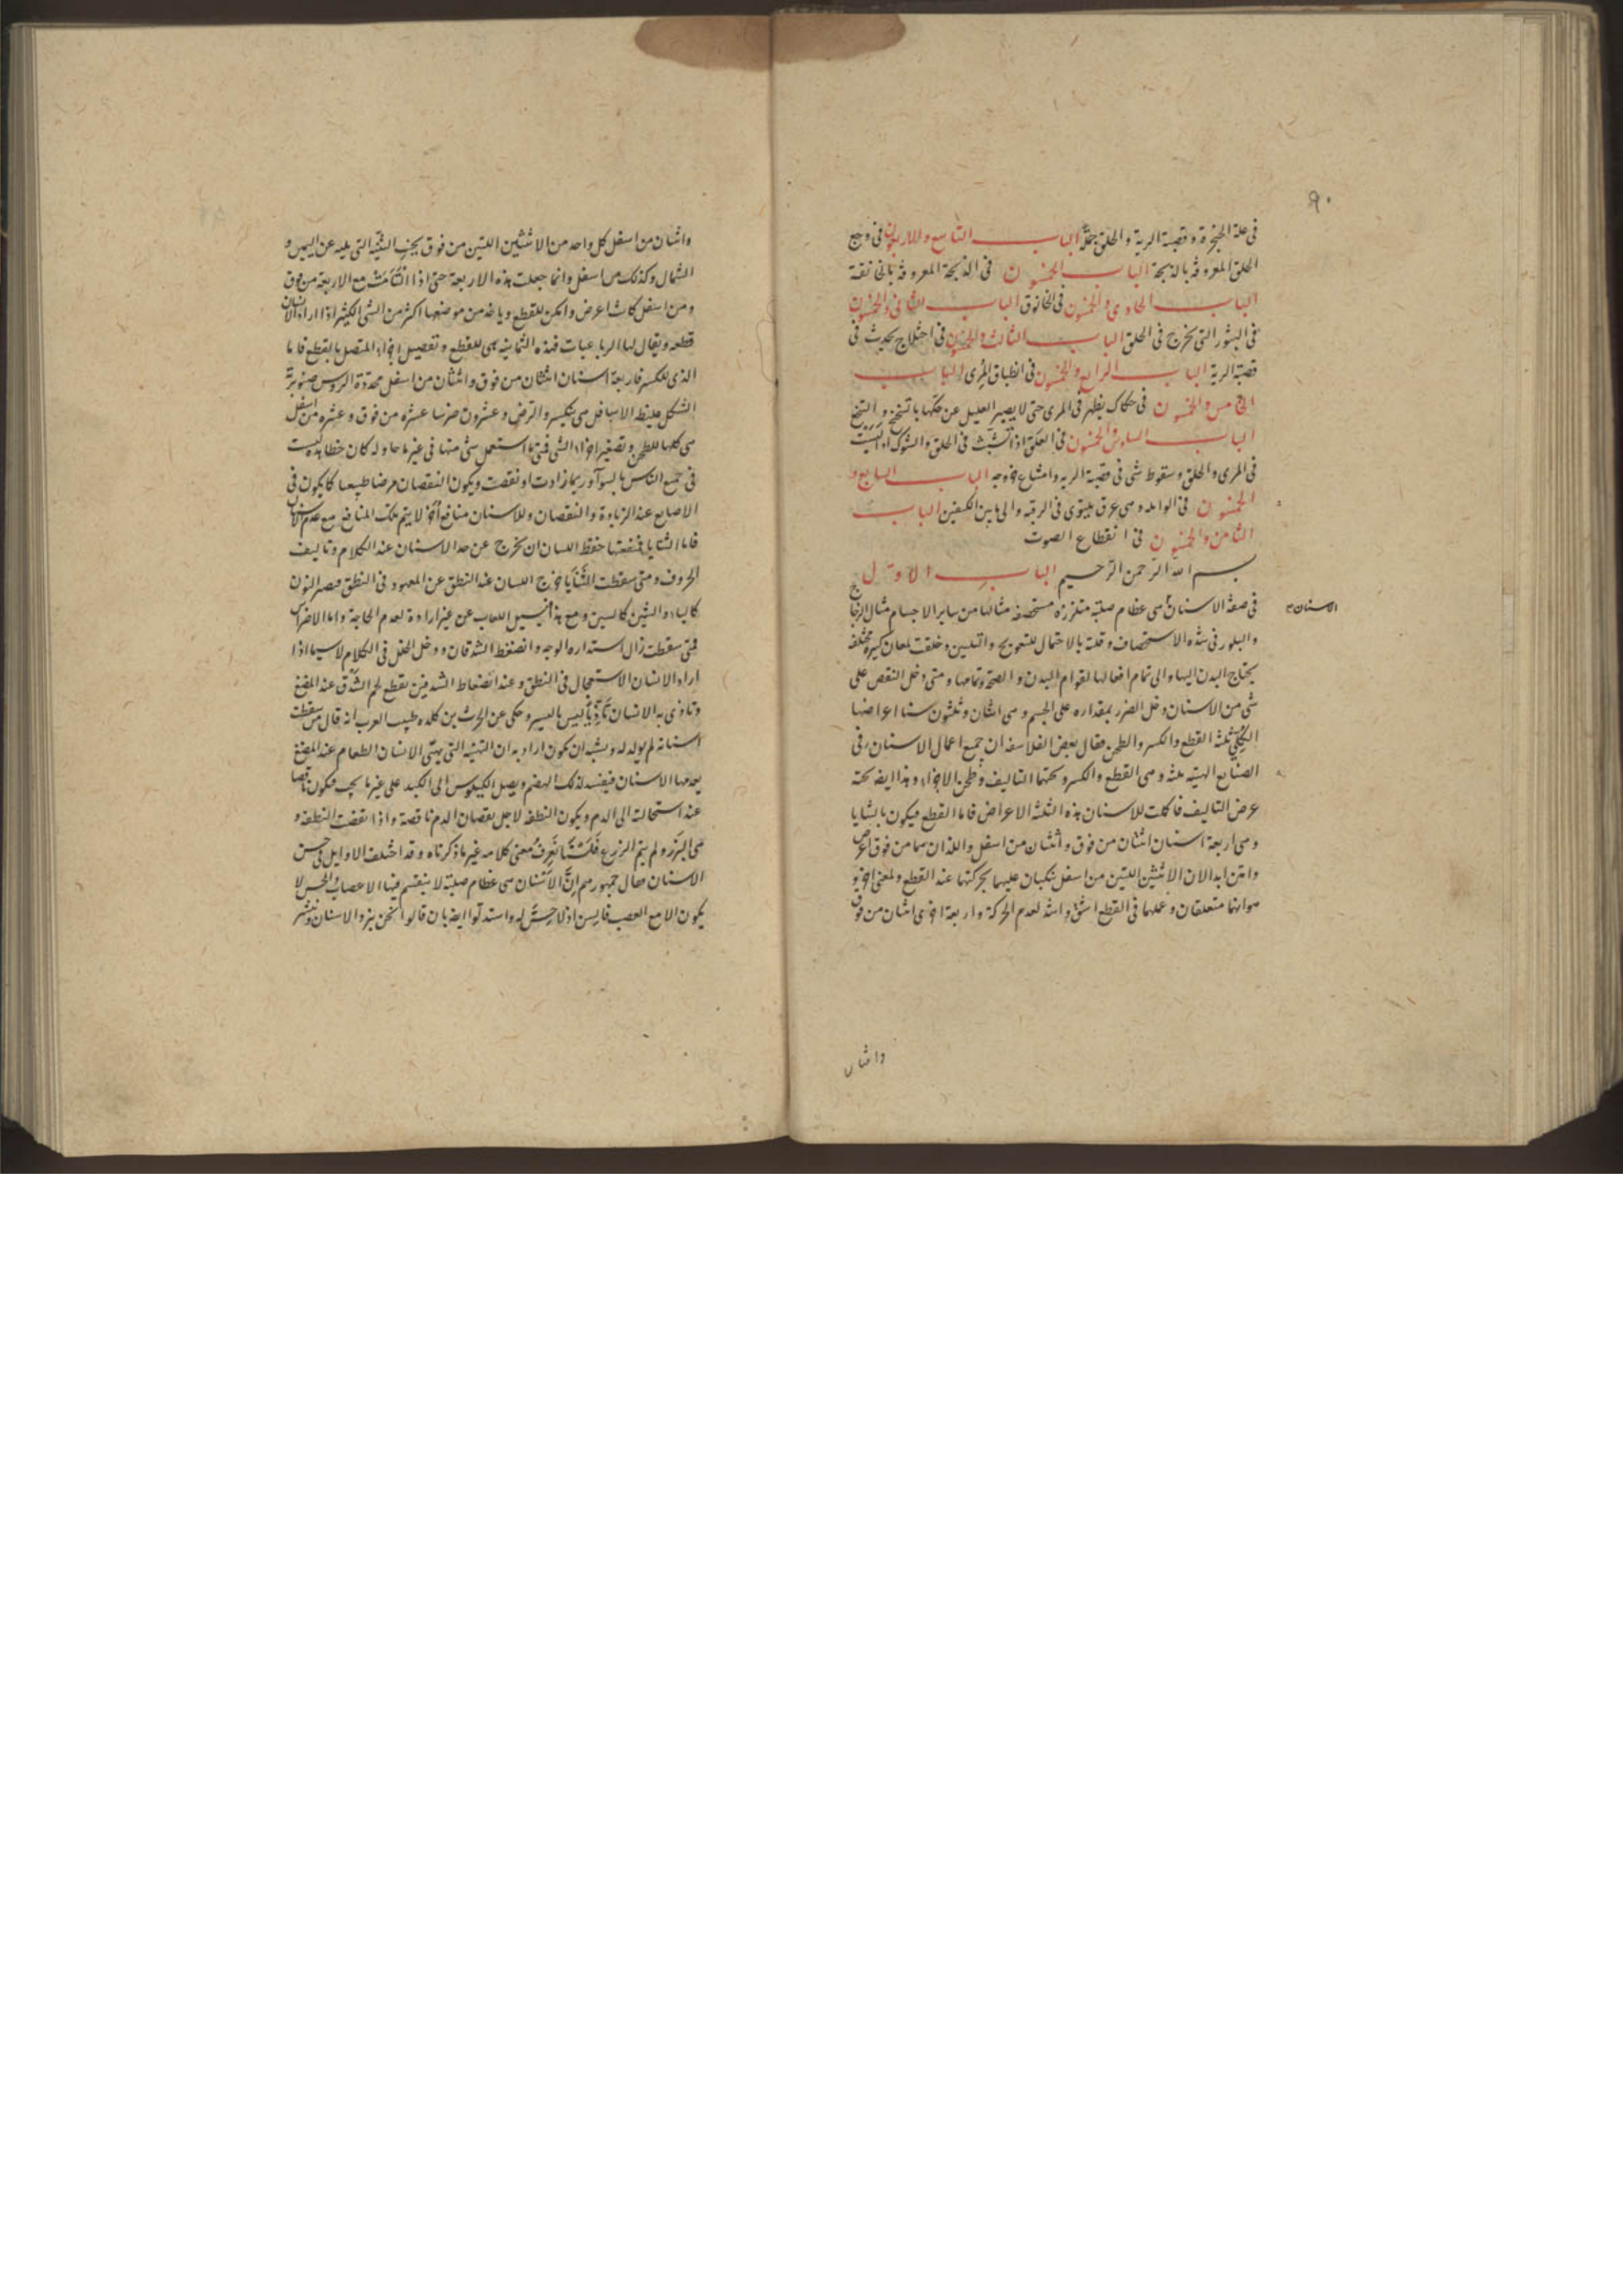 ٩٠
في علة الحنجرة وقصبة الرية والحلق جملة الباب التاسع والاربعون في وجع
الحلق المعروفة بالذبحة الباب الخمسون في الذبحة المعروفة
الباب الحادي والخمسون في الخانوق الباب الثاني والخمسون
في البثور التي تخرج في الحلق الباب الثالث والخمسون في اختلاج يحدث في
قصبة الرية الباب الرابع والخمسون في انطباق المرى الباب
الخامس والخمسون في حكاك يظهر في المرى حتى لا يصبر العليل عن حكها بالتنخنح و
الباب السادس والخمسون في العلقة اذا تشبث في الحلق والشوك اذا
في المرى والحلق وسقوط شي في قصبة الرية وامتناع خروجه الباب السابع و
الخمسون في الوابله وهي عرق يلتوى في الرقبه والى ما بين الكتفين الباب
الثامن والخمسون في انقطاع الصوت
بسم الله الرحمن الرحيم الباب الاول
في صفة الاسنان هي عظام صلبة متلززه مستحصفه مثالها من ساير الاجسام مثال الزجاج
الاسنان
والبلور في شده الاستحصاف وقلة الاحتمال للتعويج والتليين وخلقت لمعان كثيرة مختلفه
يحتاج البدن اليها والى تمام افعالها لقوام البدن والصحة وتمامها ومتى دخل النقص على
شي من الاسنان دخل الضرر بمقداره على الجسم وهي اثنان وثلثون سنا اعراضها
ثلثة القطع والكسر والطحن وقال بعض الفلاسفه ان جميع اعمال الاسنان في
الصنايع المهنيه ثلثه وهي القطع والكسر وتحتها التاليف وطحن الاجزاء وهذا ايضه تحته
عرض التاليف فاكملت للاسنان هذه الثلثة الاعراض فاما القطع فيكون بالثنايا
وهي اربعة اسنان اثنتان من فوق واثنتان من اسفل واللذان هما من فوق اعرض
وامتن ابدا لان الاثنتين اللتين من اسفل تتكيان عليهما بحركتها عند القطع ولمعنى اخر و
هو انهما متعلقان وعملهما في القطع اشق واشد لعدم الحركة واربعة اخرى اثنتان من فوق
واثنان
واثنتان من اسفل كل واحد من الاثنتين اللتين من فوق بجنب الثنيه التي يليه عن اليمين و
الشمال وكذلك من اسفل وانما جعلت هذه الاربعة حتى اذا التأمت مع الاربعة من فوق
ومن اسفل كانت اعرض وامكن للقطع وياخذ من موضعها اكثر من الشي الكثير اذا اراد الانسان
قطعه ويقال لها الرباعيات فهذه الثمانيه هي للقطع وتفصيل اجزاء المتصل بالقطع فاما
الذي للكسر فاربعة اسنان اثنتان من فوق واثنتان من اسفل محددة الروس صنوبرية
الشكل غليظ الاسافل هي بتكسير والترض وعشرون ضرسا عشره من فوق وعشره من اسفل
هي كلها للطحن وتصغير اجزاء الشي فمتى ما استعمل شي منها في غير ما هو له كان خطا وليست
في جميع الناس بالسوآء وربما زادت او نقصت ويكون النقصان مرضا طبيعيا كما يكون في
الاصابع عند الزيادة والنقصان وللاسنان منافع اخر لا يتم تلك المنافع مع عدم الاسنان
فاما الثنايا فمنفعتها حفظ اللسان ان يخرج عن حد الاسنان عند الكلام وتاليف
الحروف ومتى سقطت الثنايا خرج اللسان عند النطق عن المعهود في النطق فصير النون
كالياء والشين كالسين ومع هذا فيسيل اللعاب عن غير ارادة لعدم الحاجة واما الاضراس
فمتى سقطت زال استداره الوجه وانضغط الشدقان ودخل الخلل في الكلام لاسيما اذا
اراد الانسان الاستعجال في النطق وعند انضغاط الشدقين يقطع لحم الشدق عند المضغ
وتاذى به الانسان تاذيا ليس باليسير وحكي عن الحرث بن كلده طبيب العرب انه قال من سقطت
اسنانه لم يولد له ويشبه ان يكون اراد به ان التهيئة التي يهيى الانسان الطعام عند المضغ
يعدمها الاسنان فيفسد لذلك الهضم ويصل الكيلوس الى الكبد على غير ما يجب فيكون ناقصا
عند استحالته الى الدم ويكون النطفه لاجل نقصان الدم ناقصة واذا نقصت النطفه و
هي البزر ولم يتم الزرع فلسنا نعرف معنى كلامه غير ما ذكرناه وقد اختلف الاوايل في حس
الاسنان فقال جمهورهم ان الاسنان هي عظام صلبة لا ينقسم فيها الاعصاب والحس لا
يكون الا مع العصب فليس اذا لا حس له واستدلوا ايضه بان قالوا نحن نبرد الاسنان وننشر